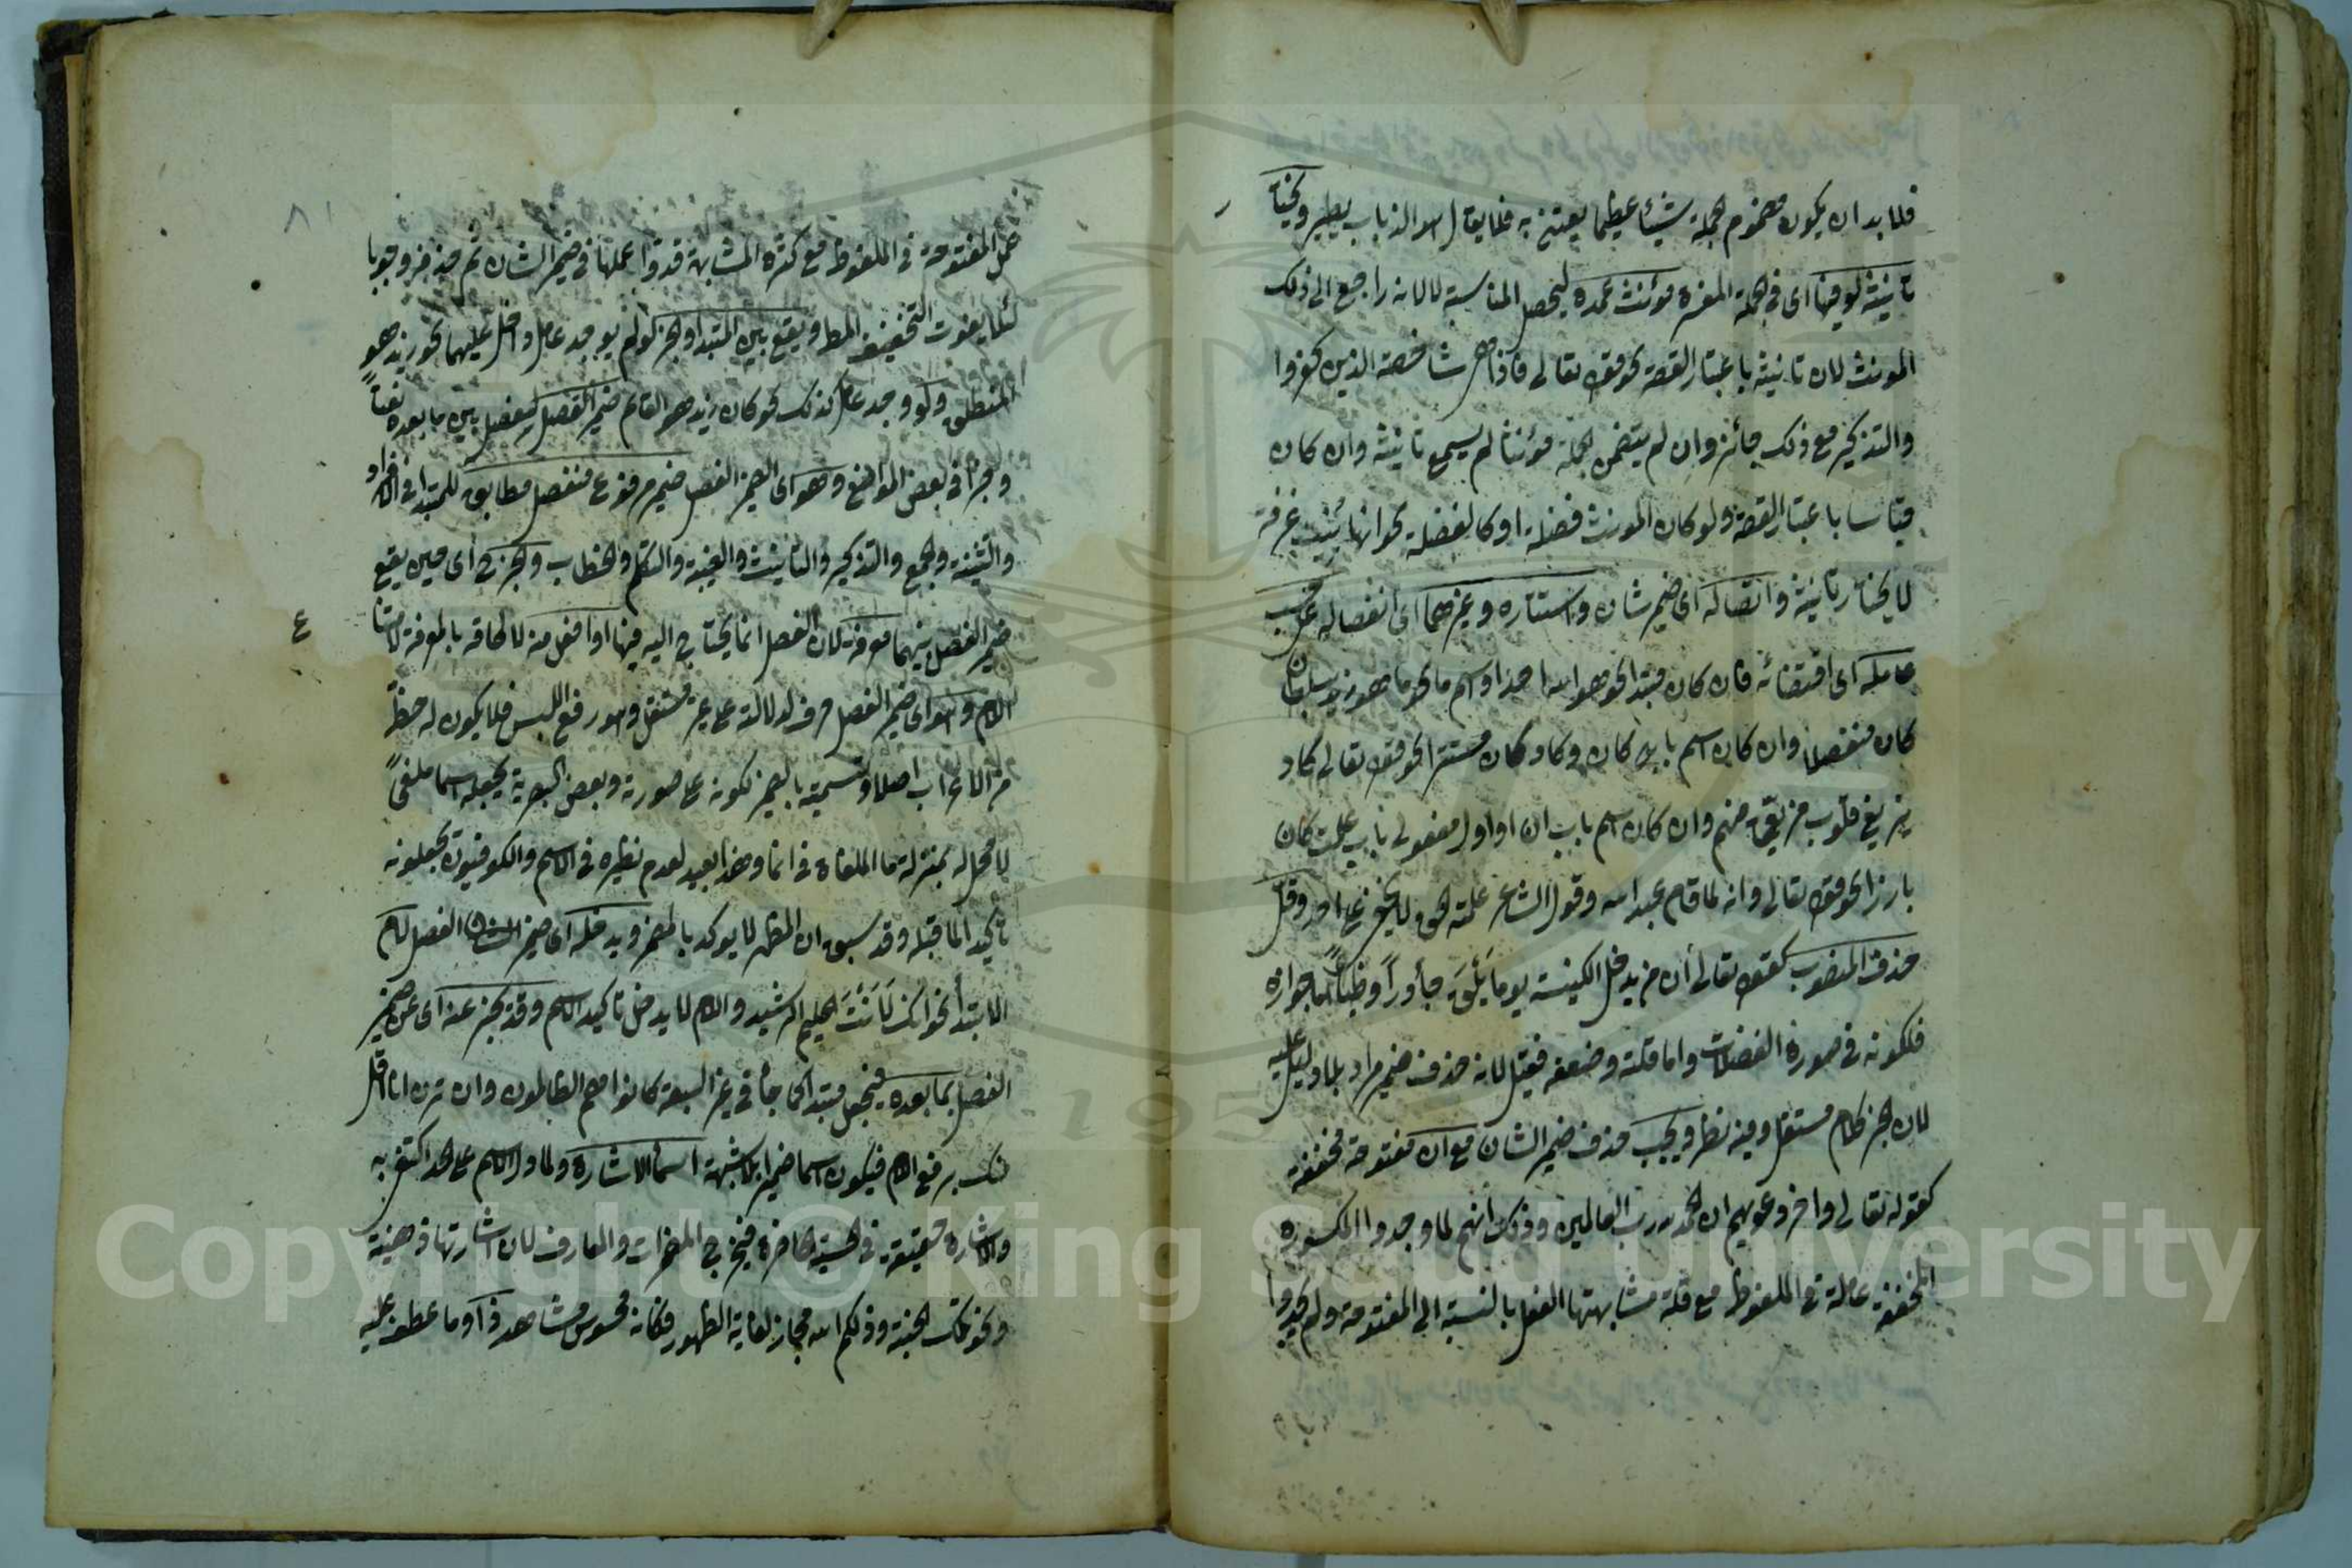 فلا بد ان يكون مضمون الجملة شيئا عظيما يعتنى به فلا يقال هو الذباب يطير ويختار
تانيثه لو فيها اى فى الجملة المفسرة مؤنث عمدة ليحصل المناسبة لا لانه راجع الى ذلك
المونث لان تانيثه باعتبار القصة نحو قوله تعالى فاذا هى شاخصة الذين كفروا
والتذكير مع ذلك جائز وان لم يتضمن الجملة مؤنثا لم يسمع تانيثه وان كان
قياسا باعتبار القصة ولو كان المونث فضلة او كالفضلة نحو انها بنيت غرفة
لا يختار تانيثه واتصاله اى ضمير شان واستتاره وغيرهما اى انفصاله على حسب
عامله اى اقتضائه فان كان مبتدا نحو هو الله احد او اسم ما نحو ما هو زيد بسلطان
كان منفصلا وان كان اسم باب كان وكاد كان مستترا نحو قوله تعالى كاد
يزيغ قلوب فريق منهم وان كان اسم باب ان او اول مفعولى باب علمت كان
بارزا نحو قوله تعالى وانه لما قام عبد الله وقول الشاعر علمته الحق لا يخفى على احد وقل
حذف المنصوب كقوله تعالى ان من يدخل الكنيسة يوما يَلْقَ جآوراً وظباءً اما جوازه
فلكونه فى صورة الفضلات واما قلته وضعفه فقيل لانه حذف ضمير مراد بلا دليل عليه
لان الخبر كلام مستقل وفيه نظر ويجب حذف ضمير الشان مع ان مفتوحة مخففة
كقوله تعالى واخر دعويهم ان الحمد لله رب العالمين وذلك انهم لما وجدوا المكسورة
المخففة عاملة فى الملفوظ مع قلة مشابهتها الفعل بالنسبة الى المفتوحة ولم يجدوا
عمل المفتوحة فى الملفوظ مع كثرة المشابهة قدروا عملها فى ضمير الشان ثم حذفوه وجوبا
لئلا يفوت التخفيف المط ويقع بين المبتدا والخبر لو لم يوجد عامل داخل عليهما نحو زيد هو
المنطلق ولو وجد عامل كذلك نحو كان زيد هو القائم ضمير الفصل ليفصل بين ما بعده نعتاً
وخبرا فى بعض المواضع وهو اى الضمير الفصل ضمير مرفوع منفصل مطابق للمبتدا فى الافراد
والتثنية والجمع والتذكير والتانيث والغيبة والتكلم والخطاب والخبر ح اى حين يقع
ضمير الفصل بينهما معرفة لان الفصل انما يحتاج اليه فيها او افعل من لالحاقه بالمعرفة لامتناع
ع
اللام وهو اى ضمير الفصل حرف لدلالته على غير مستقل وهو رفع اللبس فلا يكون له حظّ
من الاعراب اصلا وتسميته بالضمير لكونه على صورته وبعض البصرية يجعله اسما ملغىً
لا محل له بمنزلة ما الملغاة فى انما وهذا بعيد لعدم نظيره فى الاسم والكوفيون يجعلونه
تاكيدا لما قبله وقد سبق ان المظهر لا يوكد بالمضمر ويدخله اى ضمير الفصل لام
الابتدأ نحو انك لَاَنْتَ الحليم الرشيد واللام لا يدخل تاكيد الاسم وقد يخبر عنه اى عن ضمير
الفصل بما بعده فيجعل مبتدا كما جأ فى غير السبعة كانوا هم الظالمون وان ترن انا اقل
منك برفع اللام فيكون اسما ضميرا بلا شبهة اسمأ الاشارة ولما دل الاسم على الحد اكتفى به
والاشارة حقيقة فى الحسية الحاضرة فيخرج المضمرات والمعارف لان اشارتها ذهنية
ونحو تلك الجنة وذلكم الله مجاز لغاية الظهور فكانه محسوس مشاهد ذا وما عطف عليه
٨١
Copyright © King Saud University
195